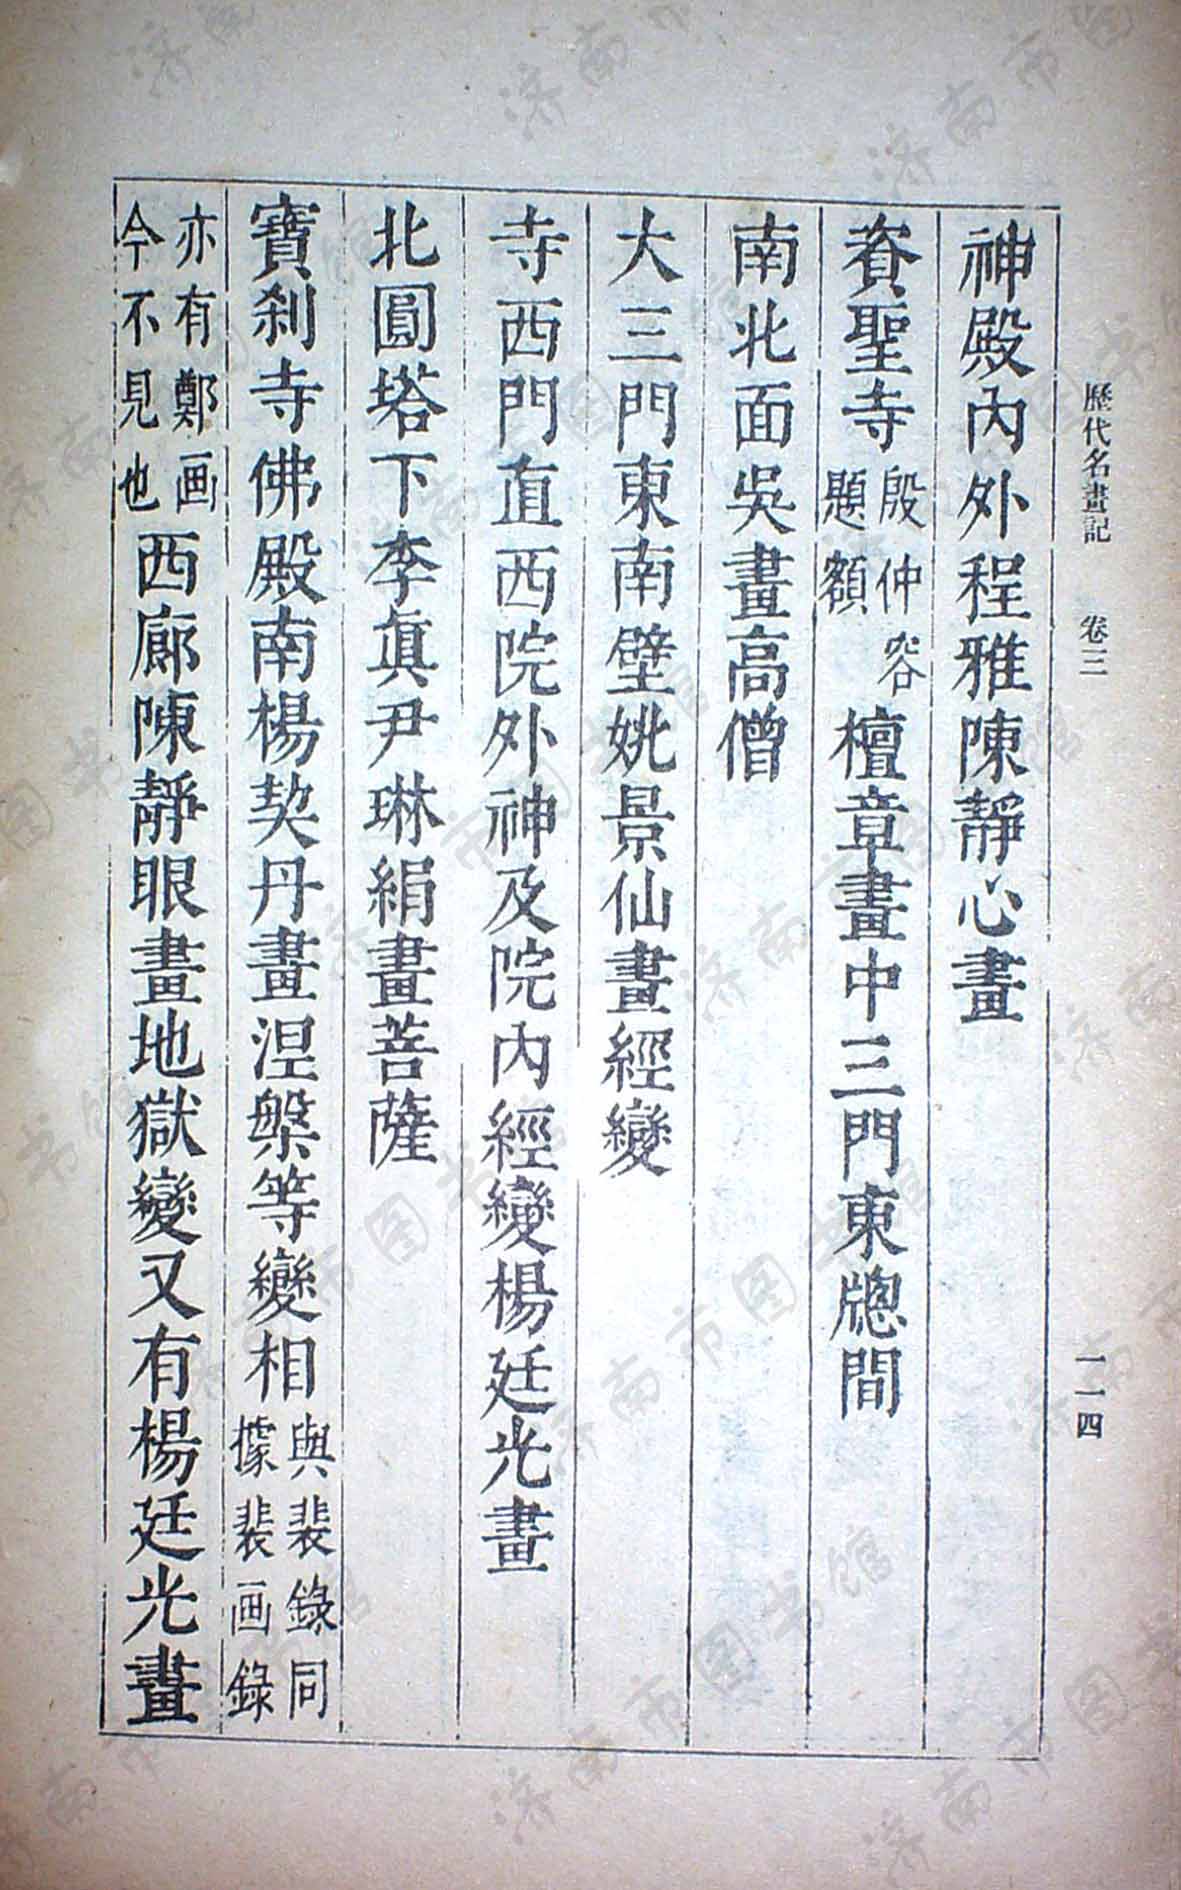 歷代名畫記 卷三 一一四
神殿內外程雅陳靜心畫
資聖寺殷仲容題額檀章畫中三門東牎間
南北面吳畫高僧
大三門東南壁姚景仙畫經變
寺西門直西院外神及院內經變楊廷光畫
北圓塔下李眞尹琳絹畫菩薩
寶刹寺佛殿南楊契丹畫涅槃等變相與裴錄同據裴画錄
亦有鄭画今不見也西廊陳靜眼畫地獄變又有楊廷光畫
济南市图书馆